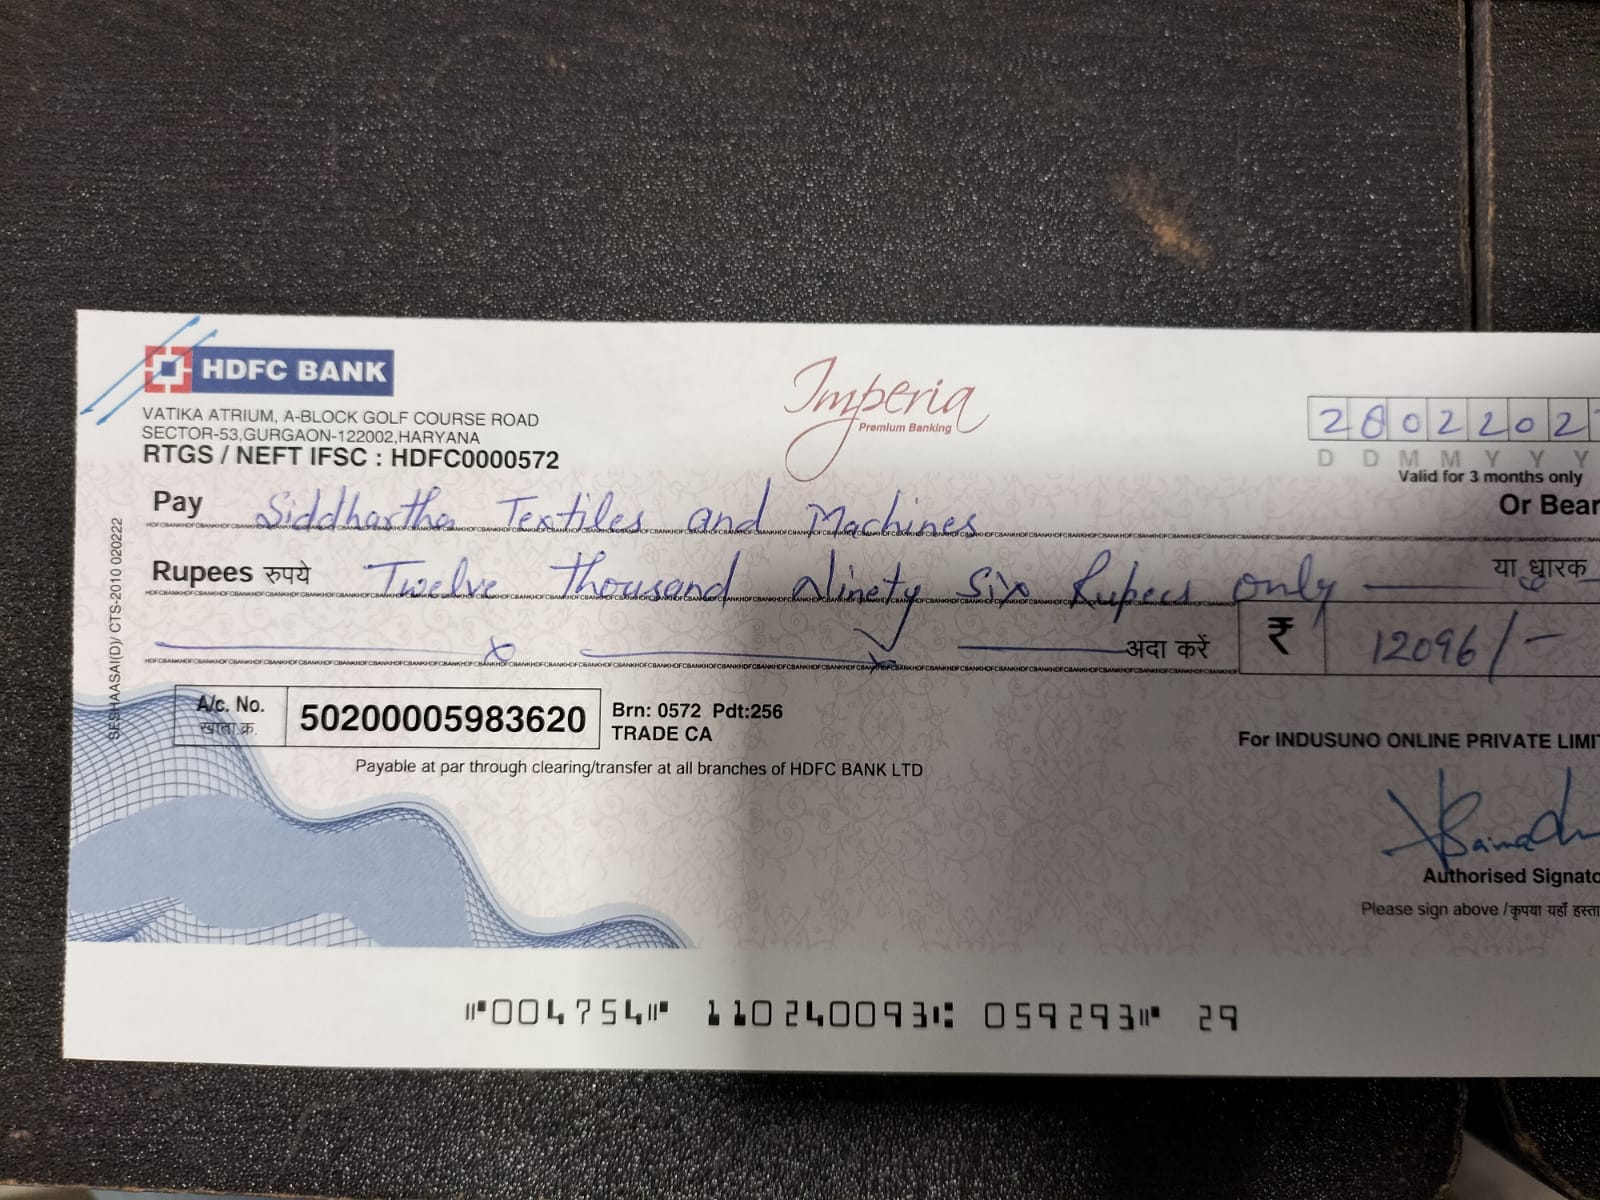 HDFC BANK
VATIKA ATRIUM, A-BLOCK GOLF COURSE ROAD
SECTOR-53,GURGAON-122002,HARYANA
RTGS / NEFT IFSC : HDFC0000572
Imperia
Premium Banking
2 8 0 2 2 0 2
D D M M Y Y Y
Valid for 3 months only
Pay Siddhartha Textiles and Machines
Or Bear
Rupees रुपये Twelve thousand Ninety Six Rupees only
या धारक
अदा करें ₹ 12096/-
A/c. No.
खाता क्र.
50200005983620
Brn: 0572 Pdt:256
TRADE CA
Payable at par through clearing/transfer at all branches of HDFC BANK LTD
For INDUSUNO ONLINE PRIVATE LIMIT
Authorised Signato
Please sign above /कृपया यहाँ हस्ता
SESHAASAI(D)/ CTS-2010 020222
⑈004754⑈ 110240093⑆ 059293⑈ 29